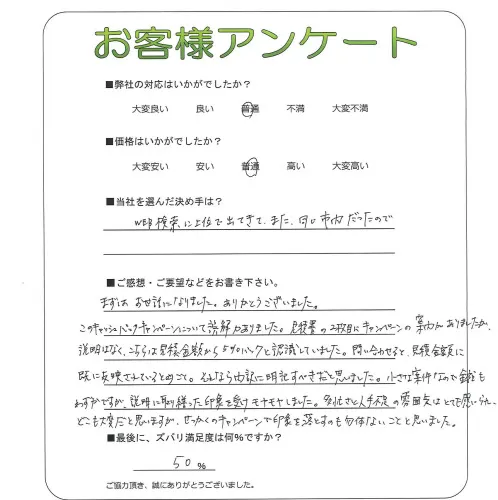 お客様アンケート
■弊社の対応はいかがでしたか?
大変良い 良い 普通 不満 大変不満
■価格はいかがでしたか?
大変安い 安い 普通 高い 大変高い
■当社を選んだ決め手は?
WEB検索に上位で出てきて、また、同じ市内だったので
■ご感想・ご要望などをお書き下さい。
まずは お世話になりました。ありがとうございました。
このキャッシュバックキャンペーンについて誤解がありました。見積書の2枚目にキャンペーンの案内がありましたが、
説明はなく、こちらは見積金額から5%のバックと認識していました。問い合わせると、見積金額に
既に反映されているとのこと。それなら内訳に明記すべきだと思いました。小さな案件なので金額も
わずかですが、説明に取り繕った印象を受けモヤモヤしました。多忙さと人手不足の雰囲気はとても感じられ、
どこも大変だと思いますが、せっかくのキャンペーンで印象を落とすのも勿体ないことと思いました。
■最後に、ズバリ満足度は何%ですか?
50 %
ご協力頂き、誠にありがとうございました。